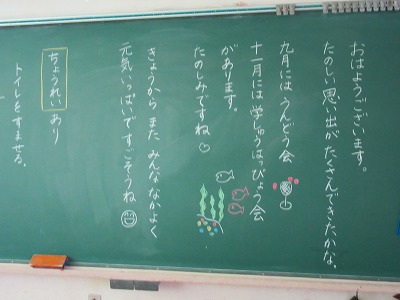 おはようございます。
たのしい思い出がたくさんできたかな。
九月には うんどう会
十一月には 学しゅうはっぴょう会
があります。
たのしみですね♡
きょうから また みんな なかよく
元気いっぱいですごそうね
ちょうれい あり
トイレをすませる。